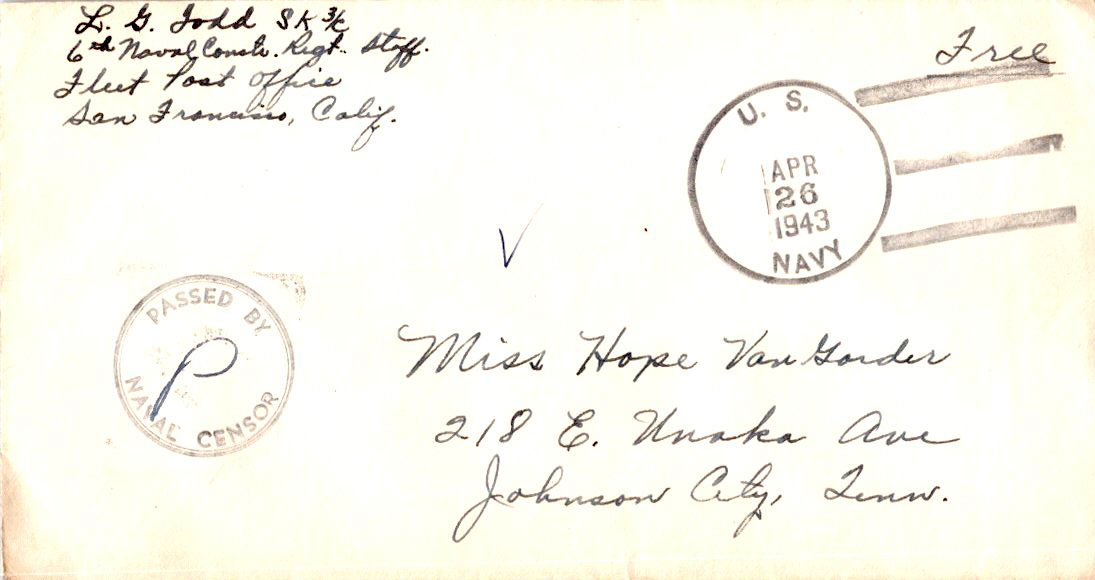 L. G. Todd SK 3/c
6th Naval Constr. Regt. Staff.
Fleet Post Office
San Francisco, Calif.
Free
U. S.
APR
26
1943
NAVY
PASSED BY
P
NAVAL CENSOR
Miss Hope Van Gorder
218 E. Unaka Ave
Johnson City, Tenn.